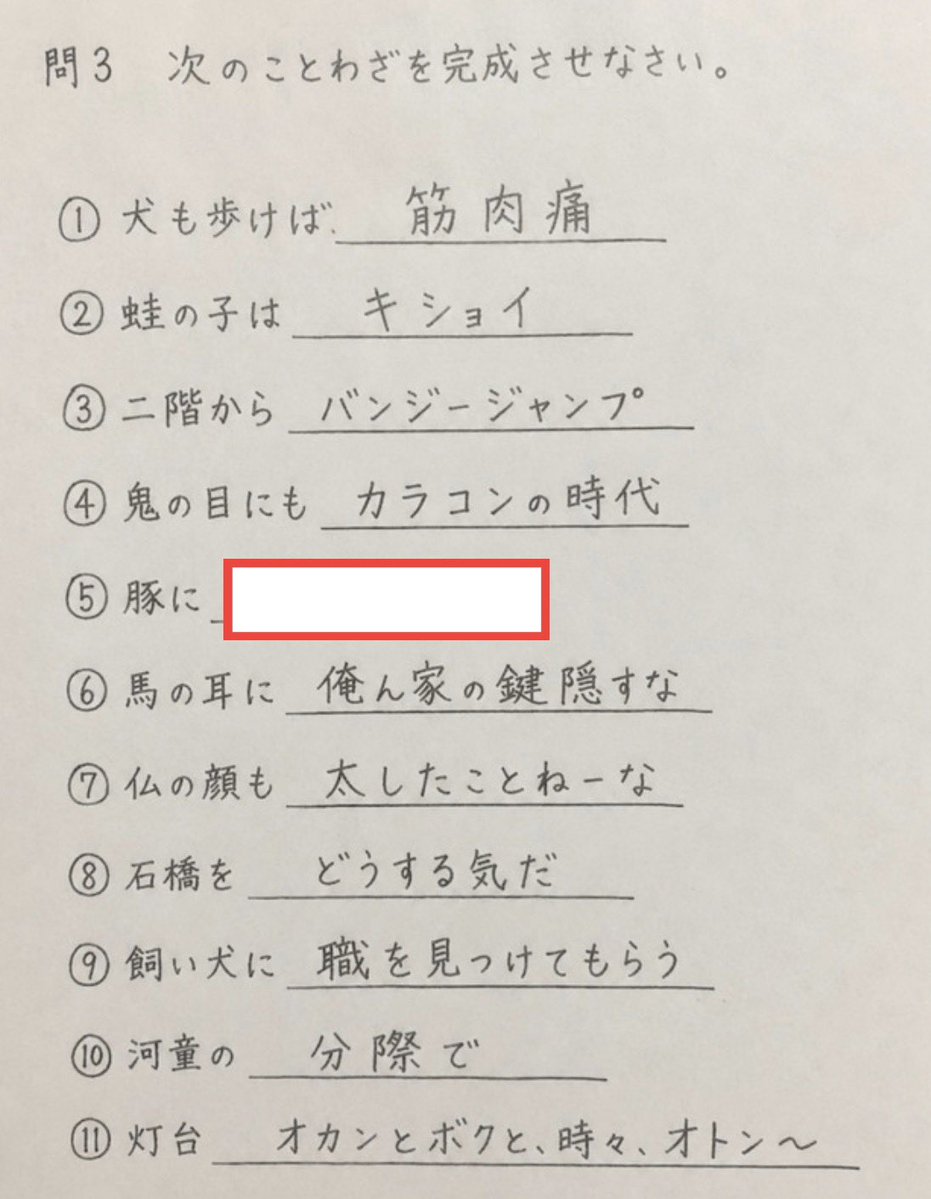 問3 次のことわざを完成させなさい。
① 犬も歩けば、筋肉痛
② 蛙の子は キショイ
③ 二階から バンジージャンプ
④ 鬼の目にも カラコンの時代
⑤ 豚に
⑥ 馬の耳に 俺ん家の鍵隠すな
⑦ 仏の顔も 太したことねーな
⑧ 石橋を どうする気だ
⑨ 飼い犬に 職を見つけてもらう
⑩ 河童の 分際で
⑪ 灯台 オカンとボクと、時々、オトン〜